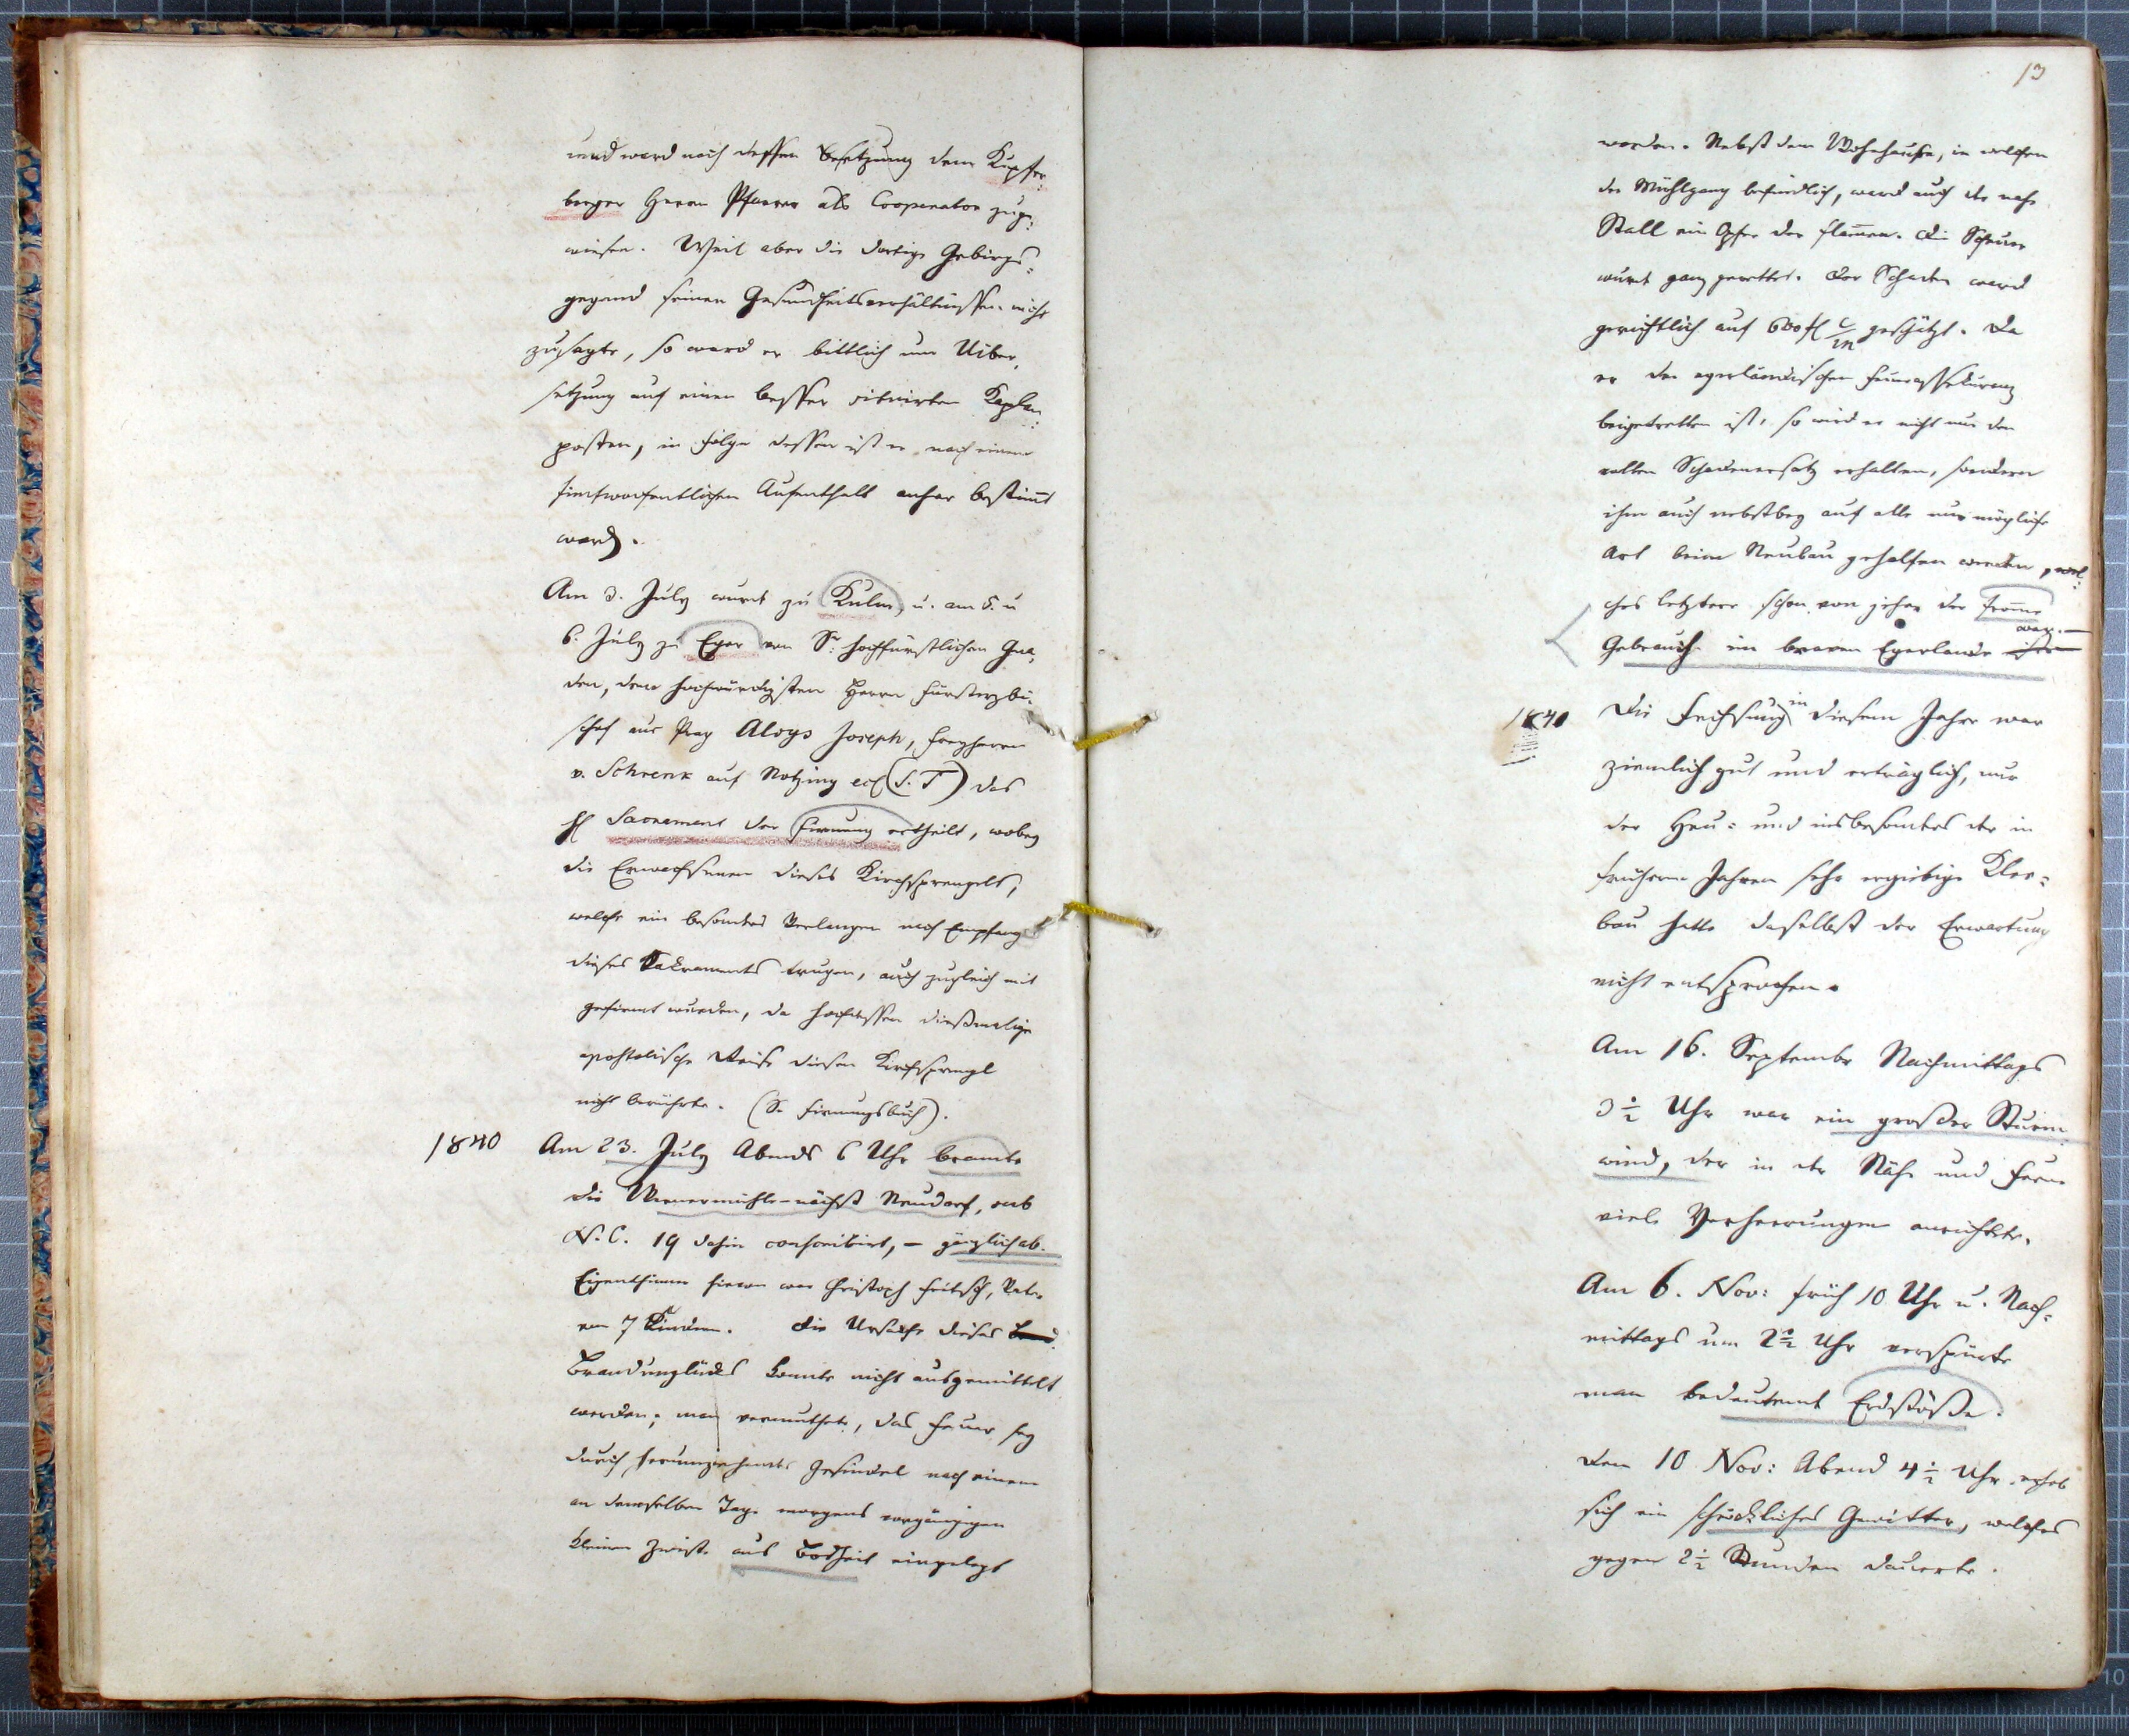 und ward nach dessen Besetzung dem Kupfer:
berger Herrn Pfarrer als Cooperator zuge:
wiesen. Weil aber die dortige Gebirgs:
gegend seinen Gesundheitsverhältnissen nicht
zusagte, so ward er bittlich um Uiber,
setzung auf einen besser situirten Kaplan:
posten, in Folge dessen ist er nach einem
aufenthalt anher bestim̄t
ward.
Am 3. July wurde zu Kulm, u. am 5. u
6. July zu Eger von Sr: hochfürstlichen Gna,
den, dem hochwürdigsten Herrn Fürsterzbi:
schof aus Prag Aloys Joseph, Freyherrn
v. Schrenk auf Notzing ec (S. T) das
hl Sacrament der Firmung ertheilt, wobey
die Erwachsenen dieses Kirchsprengels,
welche ein besonders Verlangen nach Empfang
dieses Sakraments trugen, auch zugleich mit
gefirmt wurden, da hochdessen dießmalige
apostolische Reise diesen Kirchsprengel
nicht berührte. (S. Firmungsbuch).
1840 Am 23. July Abends 6 Uhr brannte
die Wiesenmühle-nächst Neudorf, sub
N. C. 19 dahin conscribirt, - gänzlich ab.
Eigenthümer hievon war Christoph Fritsch, Vater
von 7 Kindern. Die Ursache dieses
Brandunglücks konnte nicht ausgemittelt
werden; man vermuthete, das Feuer sey
durch herumziehendes Gesindel nach einem
an demselben Tage morgens vorgängigen
kleinen Zwiste aus Bosheit eingelegt
13
worden. Nebst dem Wohnhause, in welchem
der Mühlgang befindlich, ward auch der nahe
Stall ein Opfer der Flam̄en. Die Scheuer
wurde ganz gerettet. Der Schaden ward
gerichtlich auf 600 fl C/M geschätzt. Da
er der egerländischen Feuerassekuranz
beigetretten ist, so wird er nicht nur den
vollen Schadenersatz erhalten, sondern
ihm auch nebstbey auf alle nur mögliche
Art beim Neubau geholfen werden, wel:
ches letztere schon von jeher der from̄e
war.
Gebrauch im braven Egerlande
1840 Die Fechsung in diesem Jahre war
ziemlich gut und erträglich, nur
der Heu: und insbesonders der in
frühern Jahren sehr ergiebige Klee:
bau hatte daselbst der Erwartung
nicht entsprochen.
Am 16. September Nachmittags
3 1/2 Uhr war ein großer Sturm:
wind, der in der Nähe und Ferne
viele Verheerungen anrichtete.
Am 6. Nov: früh 10 Uhr u. Nach:
mittags um 2 1/2 Uhr verspürte
man bedeutende Erdstöße.
Den 10 Nov: Abend 4 1/2 Uhr erhob
sich ein schröckliches Gewitter, welches
gegen 2 1/2 Stunden dauerte.